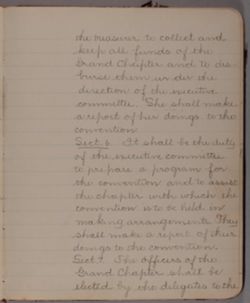 the treasurer to collect and
keep all funds of the
Grand Chapter and to dis-
burse them under the
direction of the executive
committee. She shall make
a report of her doings to the
convention
Sect. 6. It shall be the duty
of the executive committee
to prepare a program for
the convention and to assist
the chapter with which the
convention is to be held in
making arrangements. They
shall make a report of their
doings to the convention.
Sect. 7. The officers of the
Grand Chapter shall be
elected by the delegates to the